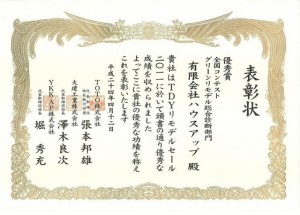 表彰状
優秀賞
全国コンテスト
グリーンリモデル総合診断部門
有限会社ハウスアップ 殿
貴社はTDYリモデルセール
二〇一一に於いて頭書の通り優秀な
成績を収められました
よってここに貴社の優秀な功績を称え
これを表彰いたします
平成二十四年四月十二日
TOTO株式会社
張本邦雄
大建工業株式会社
澤木良次
YKKAP株式会社
堀 秀充